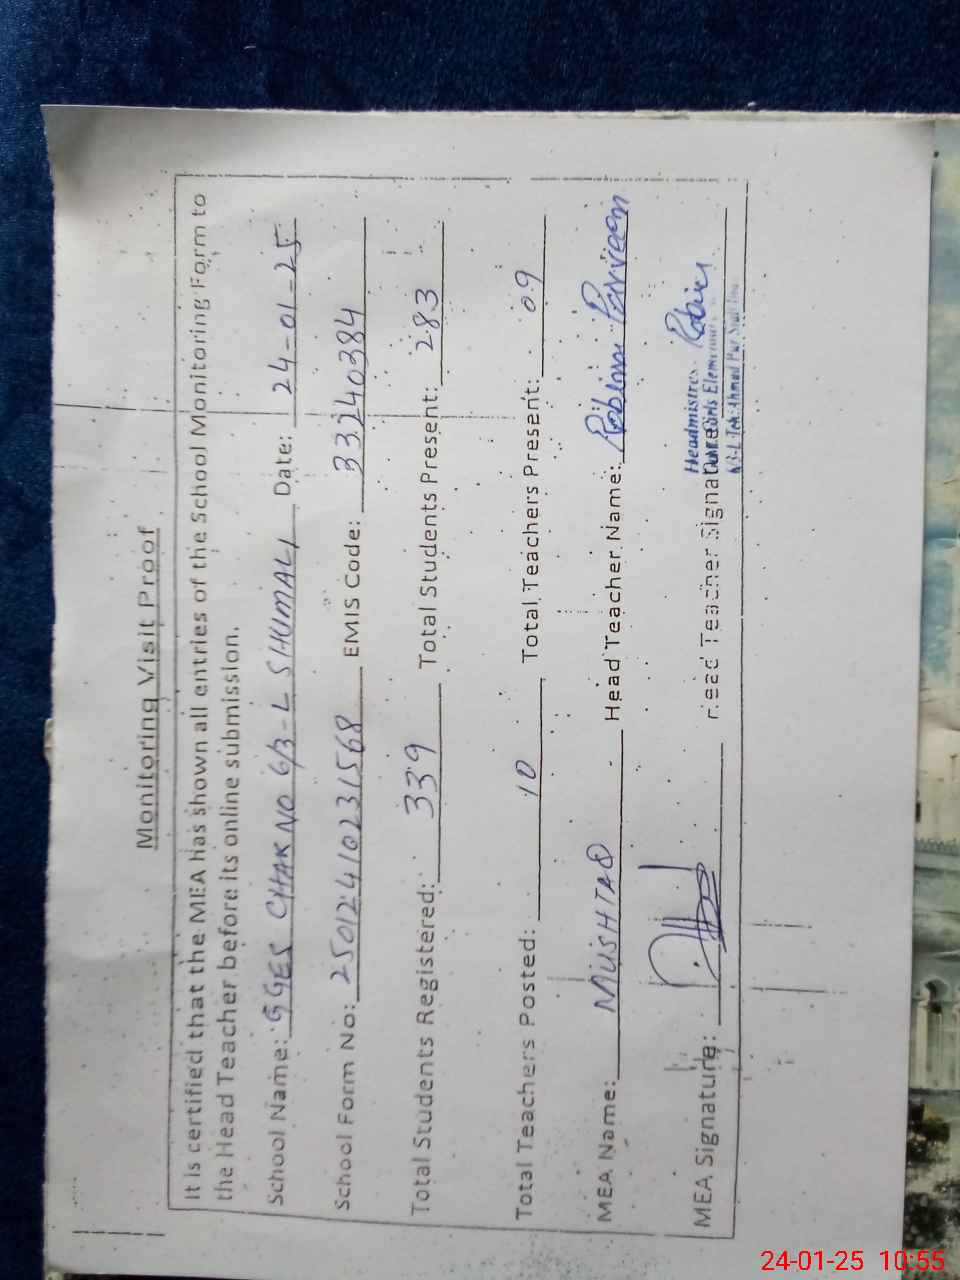 Monitoring Visit Proof
It is certified that the MEA has shown all entries of the School Monitoring Form to
the Head Teacher before its online submission.
School Name: GGES CHAK NO 6/3-L SHUMALI Date: 24-01-25
School Form No: 25012410231568 EMIS Code: 33240384
Total Students Registered: 339 Total Students Present: 283
Total Teachers Posted: 10 Total Teachers Present: 09
MEA Name: MUSHTAQ Head Teacher Name: Robina Perveen
MEA Signature: Head Teacher Signature:
Headmistress
Girls Elementary
6/3-L Teh: Ahmad Pur Sial
24-01-25 10:55